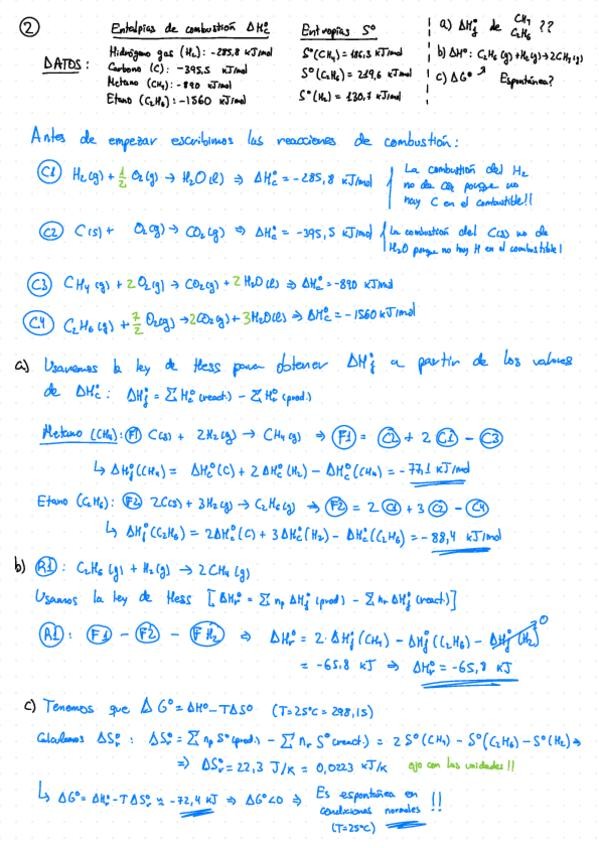 ② Entalpías de combustión ΔHc° Entropías S° a) ΔHf° de CH4 C2H6 ??
DATOS: Hidrógeno gas (H2): -285,8 kJ/mol S°(CH4) = 186,3 kJ/mol b) ΔH°: C2H6(g)+H2(g)→2CH4(g)
Carbono (C): -395,5 kJ/mol S°(C2H6) = 229,6 kJ/mol c) ΔG° ↗ Espontánea?
Metano (CH4): -890 kJ/mol S°(H2) = 130,7 kJ/mol
Etano (C2H6): -1560 kJ/mol
Antes de empezar escribimos las reacciones de combustión:
C1 H2(g) + 1/2 O2(g) → H2O(l) ⇒ ΔHc° = -285,8 kJ/mol
La combustión del H2
no da CO2 porque no
hay C en el combustible!!
C2 C(s) + O2(g) → CO2(g) ⇒ ΔHc° = -395,5 kJ/mol
La combustión del C(s) no da
H2O porque no hay H en el combustible!
C3 CH4(g) + 2O2(g) → CO2(g) + 2H2O(l) ⇒ ΔHc° = -890 kJ/mol
C4 C2H6(g) + 7/2 O2(g) → 2CO2(g) + 3H2O(l) ⇒ ΔHc° = -1560 kJ/mol
a) Usaremos la ley de Hess para obtener ΔHf° a partir de los valores
de ΔHc°: ΔHf° = ΣHc°(react.) - ΣHc°(prod.)
Metano (CH4): F1 C(s) + 2H2(g) → CH4(g) ⇒ F1 = C2 + 2 C1 - C3
↳ ΔHf°(CH4) = ΔHc°(C) + 2ΔHc°(H2) - ΔHc°(CH4) = -77,1 kJ/mol
Etano (C2H6): F2 2C(s) + 3H2(g) → C2H6(g) ⇒ F2 = 2 C1 + 3 C2 - C4
↳ ΔHf°(C2H6) = 2ΔHc°(C) + 3ΔHc°(H2) - ΔHc°(C2H6) = -88,4 kJ/mol
b) R1: C2H6(g) + H2(g) → 2CH4(g)
Usamos la ley de Hess [ΔHr° = Σ np ΔHf°(prod) - Σ nr ΔHf°(react.)]
R1: F1 - F2 - FH2 ⇒ ΔHr° = 2·ΔHf°(CH4) - ΔHf°(C2H6) - ΔHf°(H2) 0
= -65,8 kJ ⇒ ΔHr° = -65,8 kJ
c) Tenemos que ΔG° = ΔH° - TΔS° (T = 25°C = 298,15)
Calculamos ΔSr°: ΔS° = Σ np S°(prod.) - Σ nr S°(react.) = 2 S°(CH4) - S°(C2H6) - S°(H2) ⇒
⇒ ΔSr° = 22,3 J/K = 0,0223 kJ/K ojo con las unidades!!
↳ ΔG° = ΔHr° - TΔSr° ≈ -72,4 kJ ⇒ ΔG° < 0 ⇒ Es espontánea en
condiciones normales !!
(T = 25°C)